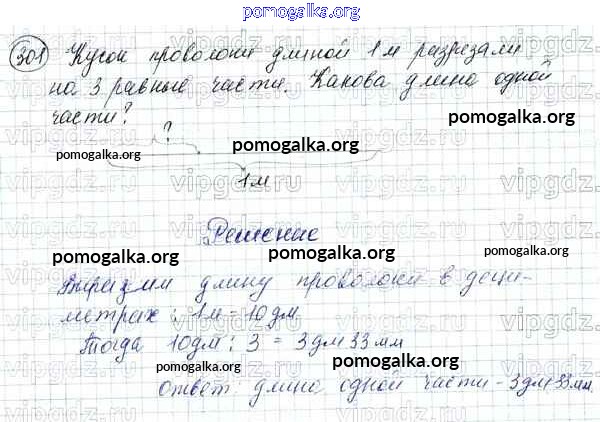 pomogalka.org
301 Кусок проволоки длиной 1м разрезали
на 3 равные части. Какова длина одной
части?
?
pomogalka.org pomogalka.org
vipgdz.ru vipgdz.ru vipgdz.ru
1м
Решение
pomogalka.org pomogalka.org
Выразим длину проволоки в деци-
метрах: 1м = 10дм.
Тогда 10дм : 3 = 3дм 33мм
pomogalka.org pomogalka.org
Ответ: длина одной части - 3дм 33мм.
pomogalka.org